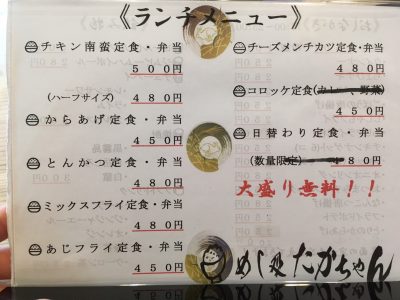 《ランチメニュー》
チキン南蛮定食・弁当
500円
(ハーフサイズ) 480円
からあげ定食・弁当
450円
とんかつ定食・弁当
480円
ミックスフライ定食・弁当
480円
あじフライ定食・弁当
450円
チーズメンチカツ定食・弁当
480円
コロッケ定食(カレー・野菜)
450円
日替わり定食・弁当
(数量限定) 480円
大盛り無料！！
めし處 たかちゃん